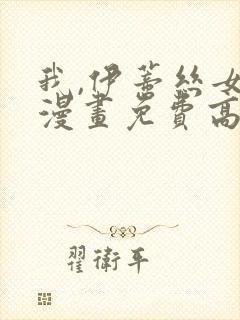 我,伊蒂丝女
漫畫免費高
翟衛平